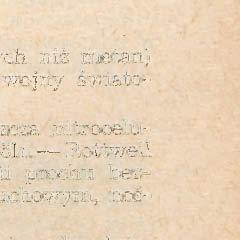 ych niż metan)
wojny świato-
ncza nitrocelu-
öln — Rottweil
li prochu bez-
uchowym, moż-